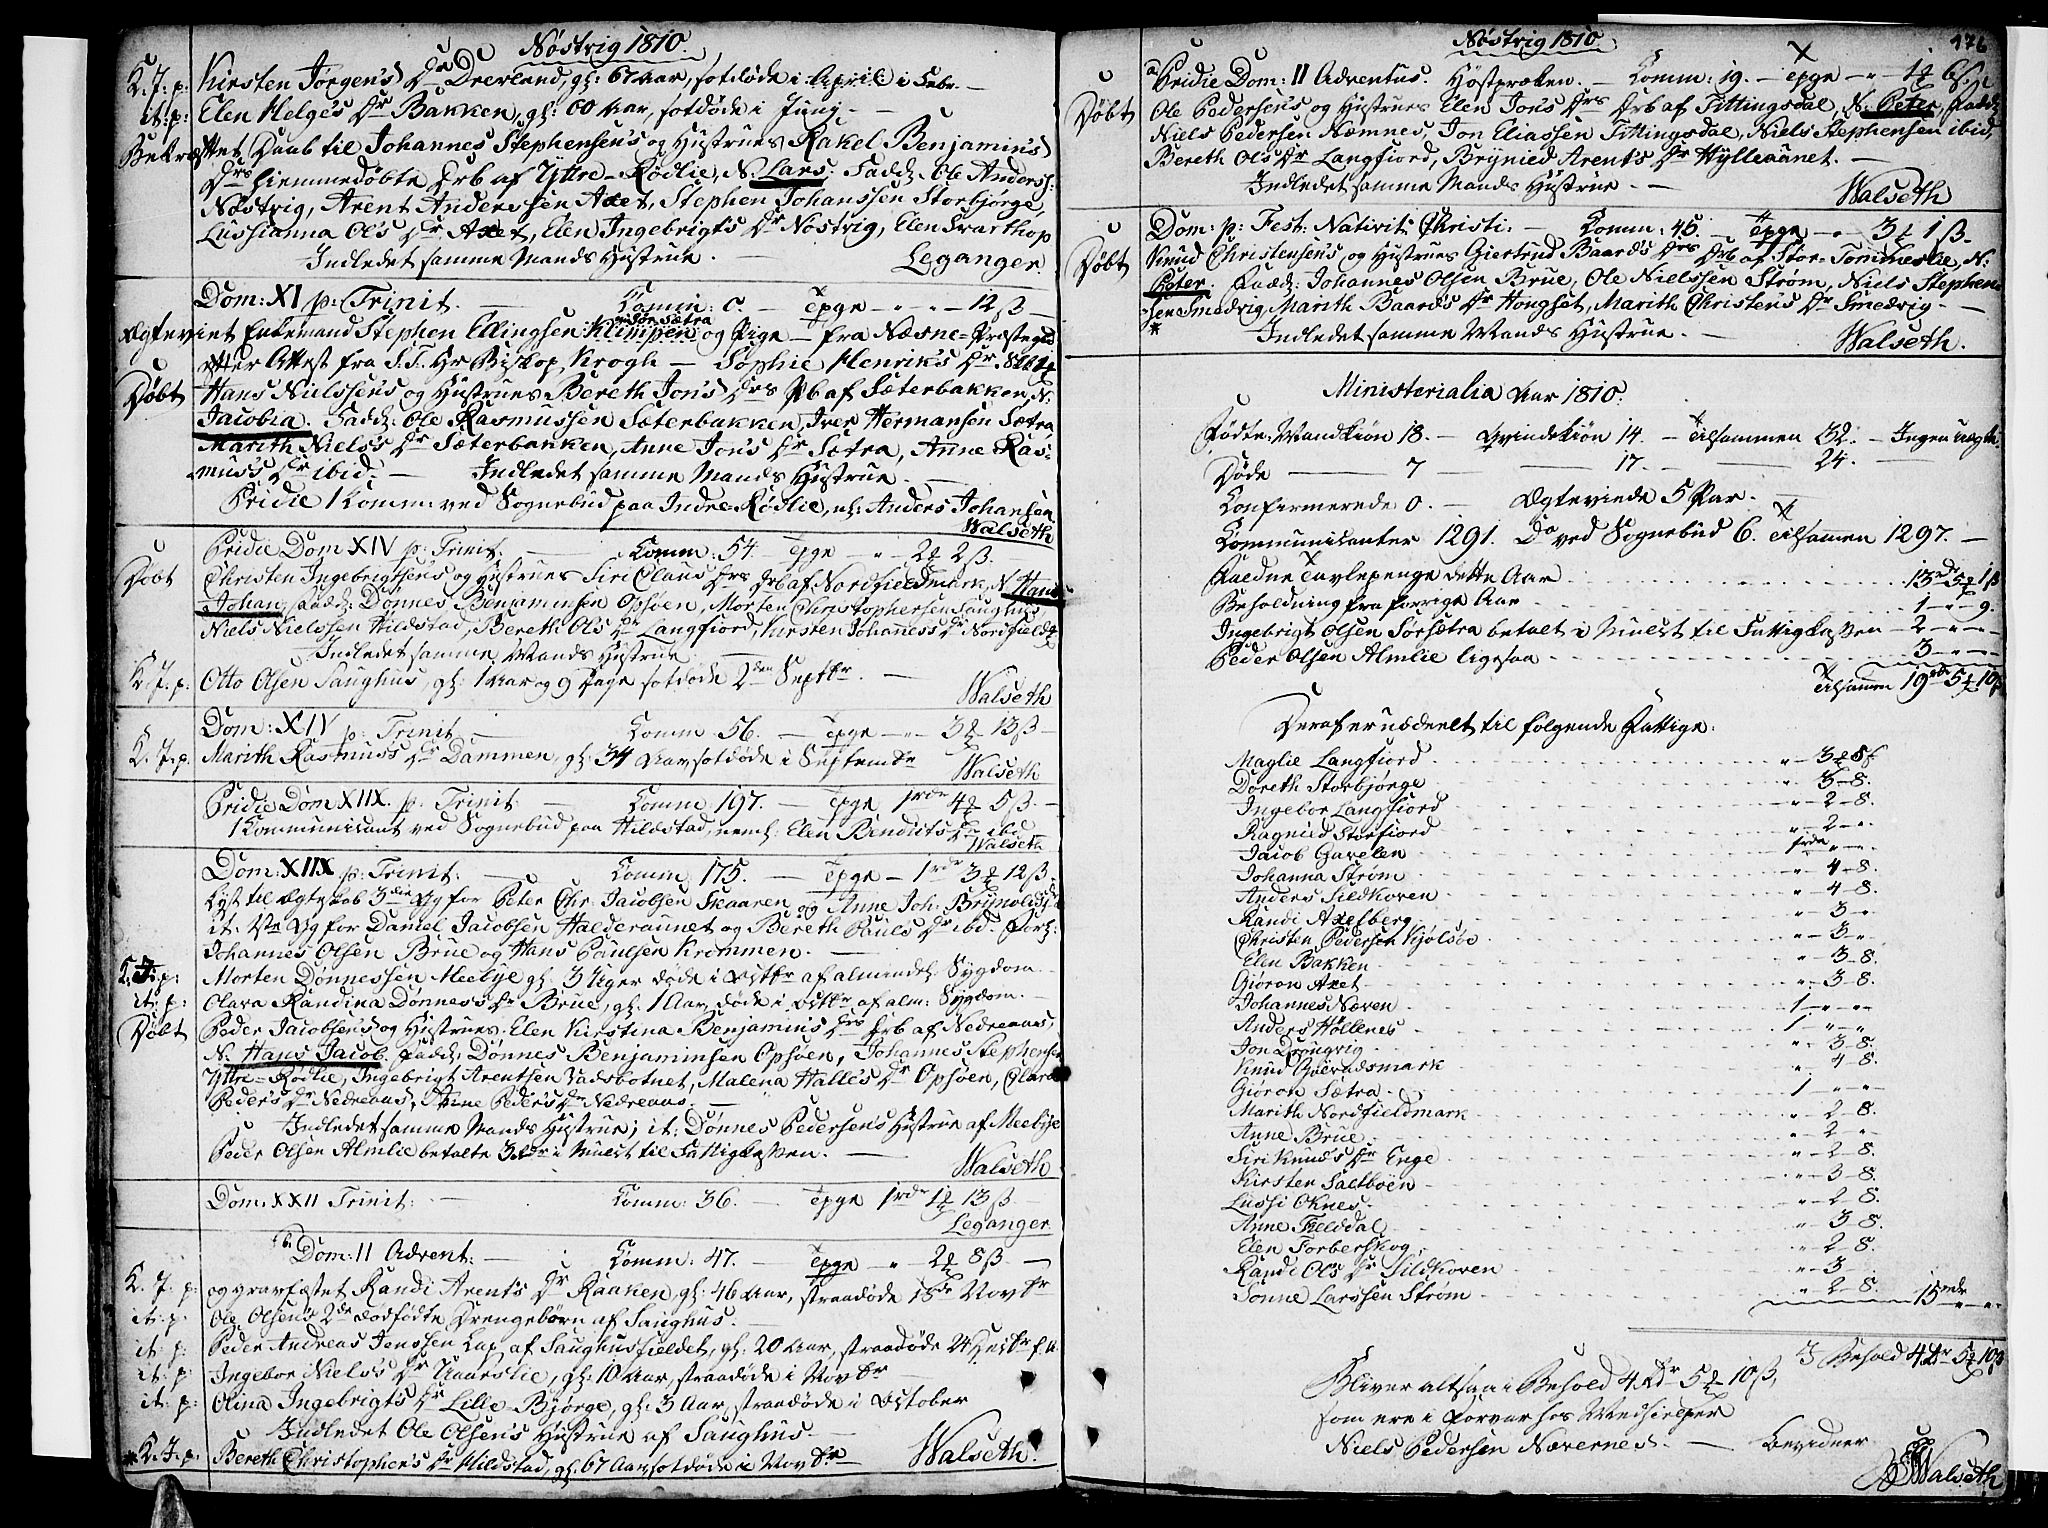 Nøstvig 1810.
K. J. p: Kirsten Jørgen's Dr Dreeland, gl: 67 Aar, sotdøde i April i Febr.
it: p: Elen Helge's Dr Bakken, gl: 60 Aar, sotdøde i Junj
Bekræftet Daab til Johannes Stephensen's og Hustrues Rakel Benjamin's
Drs hiemmedøbte Drb af Yttre-Rødlie, N: Lars. Fadd: Ole Anderss:
Nøstvig, Arent Anderssen Axet, Stephen Johanssen Storbjørge,
Lussianna Ol's Dr Axet, Elen Ingebrigt's Dr Nøstvig, Elen
Indledet samme Mands Hustrue.
Leganger.
Dom: XI p: Trinit. Comm: 0. Tpge " " 12 ß
Ægteviet Enkemand Stephen Ellingsen Klimpen og Pige fra Næsne-Præstegd
efter Attest fra S. T. Hr Biskop Krogh Sophie Henrik's Dr
Døbt Hans Nielssen's og Hustrues Bereth Jon's Drs Pb af Sæterbakken, N:
Jacobia. Fadd: Ole Rasmussen Sæterbakken, Iver Hermansen Sætra
Marith Niels's Dr Sæterbakken, Anne Jon's Dr Sætra, Anne Ras-
mus's Dr ibid: Indledet samme Mands Hustrue.
Pridie 1 Komm: ved Sognebud paa Indre-Rødlie, nl: Anders Johansen
Walseth
Pridie Dom XIV p: Trinit: Comm: 54. Tpge " 2 2 ß.
Døbt Christen Ingebrigtsen's og Hustrues Siri Claus Drs Drb af Nordfieldmark, N: Hans
Johan, Fadd: Dønnes Benjaminsen Opsøen, Morten Christophersen Saughus,
Niels Nielssen Hildstad, Bereth Ols Dr Langfiord, Kirsten Johanness Dr Nordfieldm
Indledet samme Mands Hustrue
K. J. p. Otto Olsen Saughus, gl: 1 Aar og 9 Dage sotdøde 2den Septbr.
Walseth
Dom: XIV p: Trinit. Comm 56. Tpge " 3 13 ß
K. J. p. Marith Rasmuss Dr Dammen, gl: 34 Aar sotdøde i Septembr
Walseth
Pridie Dom XIIX. p: Trinit: Comm 197. Tpge 1rdr 4 5 ß.
1 Kommunicant ved Sognebud paa Hildstad, neml: Elen Bendict's Dr ibd
Walseth
Dom: XIIX p: Trinit: Comm: 175. Tpge 1rdr 3 12 ß.
Lyst til Ægteskab 3die Gg for Peter Chr. Jacobsen Skaaren og Anne Joh: Brynolds Dr
it: 1te Gg for Daniel Jacobsen Halderaunet og Bereth Pauls Dr ibd. Forl:
Johannes Olsen Brue og Hans Paulsen Krommen.
K. J. p: Morten Dønnessen Meebye gl: 3 Uger døde i Octbr af almindel: Sygdom
it: p: Olava Randina Dønness Dr Brue, gl: 1 Aar døde i Octbr af alm: Sygdom.
Døbt Peder Jacobsen's og Hustrues Elen Kirstina Benjamins Drs Drb af Nedreaas,
N: Hans Jacob. Fadd: Dønnes Benjaminsen Opsøen, Johannes Stephensen
Yttre-Rødlie, Ingebrigt Arentsen Vadsbotnet, Malena Halle's Dr Opsøen, Clara
Peder's Dr Nedreaas, Anne Peder's Dr Nedreaas.
Indledet samme Mands Hustrue; it: Dønnes Pedersen's Hustrue af Meebye
Peder Olsen Almlie betalte 3 rdr i Mulct til Fattigkassen.
Walseth
Dom: XXII Trinit: Comm: 36. Tpge 1rdr 1 13 ß
Leganger
Dom: II Advent: Comm: 47. Tpge " 2 8 ß
K. J. p: og gravfæstet Randi Arent's Dr Raaken, gl: 46 Aar, straadøde 18de Novbr
it: p. Ole Olsen's 2de dødfødte Drengebørn af Saughus.
it: p: Peder Andreas Jenssen Lap af Saughusfieldet, gl: 20 Aar, straadøde 24
it: p: Ingebor Niels's Dr Aaarslie, gl: 10 Aar, straadøde i Novbr
it: p: Olina Ingebrigt's Dr Lille-Bjørge, gl: 3 Aar, straadøde i October
Indledet Ole Olsen's Hustrue af Saughus.
* K. J. p: Bereth Christophen's Dr Hildstad, gl: 67 Aar sotdøde i Novbr
Walseth.
Nøstvig 1810.
176
Pridie Dom: II Adventus. Høstprøken. Comm: 19. Tpge " 1 6 ß.
Døbt Ole Pedersen's og Hustrues Elen Jon's Drs Drb af Tittingsdal, N: Peter, Fadd:
Niels Pedersen Næmnes, Jon Eliassen Tittingsdal, Niels Stephensen ibid,
Bereth Ol's Dr Langfiord, Brynied Arent's Dr Hylleaanet.
Indledet samme Mands Hustrue.
Walseth
Dom: p: Fest: Nativit: Christi. Comm: 45. Tpge " 3 1 ß.
Døbt Knud Christensen's og Hustrues Giertrud Baard's Drs Drb af Stor-Tommeslie, N:
Peter. Fadd: Johannes Olsen Brue, Ole Nielssen Strøm, Niels Stephen-
sen Smedvig Marith Baard's Dr Hongset, Marith Christen's Dr Smedvig.
* Indledet samme Mands Hustrue
Walseth.
Ministerialia Aar 1810.
Fødte: Mandkiøn 18. Qvindekiøn 14. Tilsammen 32. Ingen uægte
Døde 7 17. 24.
Confirmerede 0. Ægteviede 5 Par.
Communicanter 1291. Do ved Sognebud 6. Tilsamen 1297.
Faldne Tavlepenge dette Aar 13 rdr 5 1 ß
Beholdning fra forrige Aar 1 " 9.
Ingebrigt Olsen Sørsætra betalt i Mulct til Fattigkassen 2 " "
Peder Olsen Almlie ligesaa 3 " "
Tilsammen 19 rdr 5 10 ß
Deraf er uddeelt til følgende Fattige:
Maglie Langfiord " 3 8 ß
Døreth Storbjørge " 3 8.
Ingebor Langfiord " 2 8.
Ragnied Storfiord " 2 "
Jacob Gavelen 1rdr " "
Johanna Strøm " 4 8.
Anders Sildkoven " 4 8.
Randi Axelberg " 3 "
Christen Pedersen Kjølsøe " 3 "
Elen Bakken " 3 8.
Giøron Axet " 3 8.
Johannes Næven 1 " "
Anders Høllenes 1 " "
Jon Drongvig " 3 8.
Knud Gøevadsmark " 4 8.
Giøron Sætra 1 " "
Marith Nordfieldmark " 2 8.
Anne Brue " 2 "
Siri Knud's Dr Enge " 2 8.
Kirsten Saltboen " 3 8.
Lussi Oknes " 2 8.
Anne Fielddal " 3 8.
Elen Forberskog " 2 8.
Randi Ols Dr Sildkoven " 3
Sønne Larssen Strøm " 2 8. 15 rdr " "
I Behold 4 rdr 5 10 ß
Bliver altsaa i Behold 4 rdr 5 10 ß,
som ere i Forvar hos Medhielper
Niels Pedersen Næverness. bevidner
Walseth